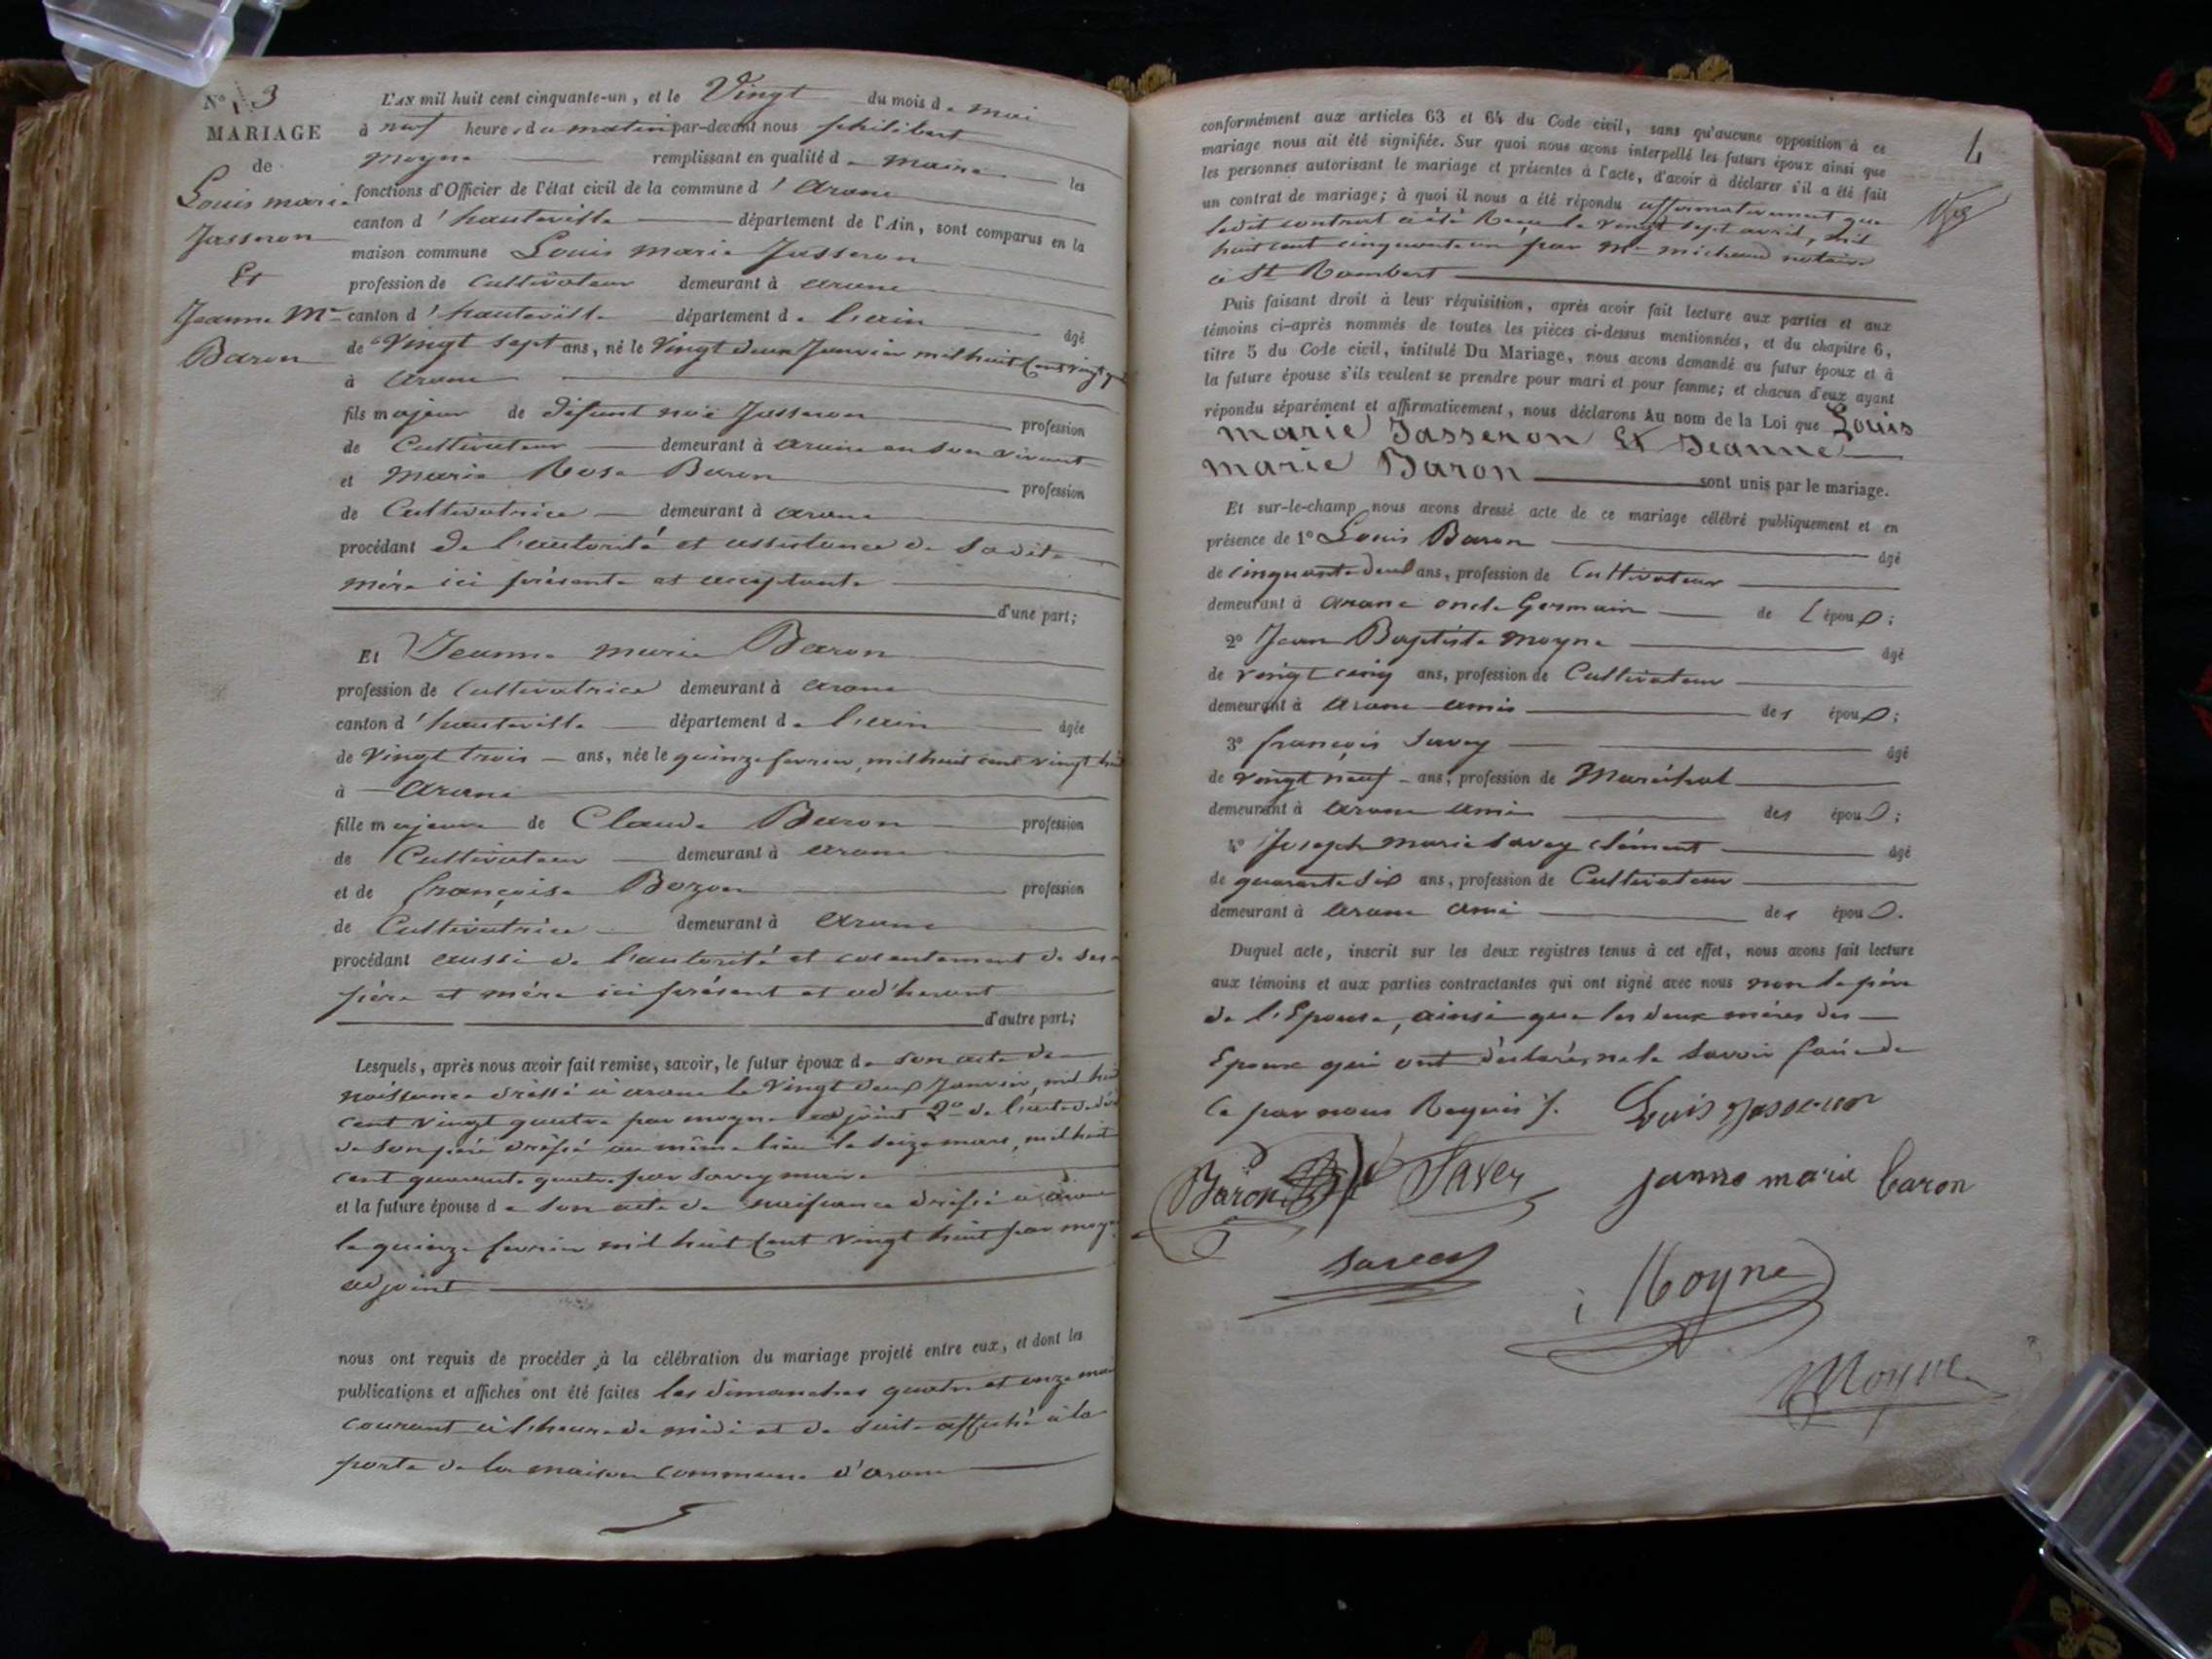 N° 3
MARIAGE
de
Louis marie
Jasseron
Et
Jeanne Mie
Baron
L'AN mil huit cent cinquante-un, et le Vingt du mois de mai
à neuf heures du matin par-devant nous philibert
moyne remplissant en qualité de maire les
fonctions d'Officier de l'état civil de la commune d'arane
canton d'hauteville département de l'Ain, sont comparus en la
maison commune Louis marie Jasseron
profession de Cultivateur demeurant à arane
canton d'hauteville département de l'ain âgé
de Vingt sept ans, né le Vingt deux Janvier mil huit Cent vingt q
à arane
fils majeur de défunt noë Jasseron profession
de Cultivateur demeurant à arane en son vivant
et Marie Rose Baron profession
de Cultivatrice demeurant à arane
procédant de l'autorité et assistance de sadite
mère ici présente et acceptante
d'une part;
Et Jeanne marie Baron
profession de Cultivatrice demeurant à arane
canton d'hauteville département de l'ain âgée
de Vingt trois ans, née le quinze fevrier, mil huit cent vingt huit
à arane
fille majeure de Claude Baron profession
de Cultivateur demeurant à arane
et de françoise Bozon profession
de Cultivatrice demeurant à arane
procédant aussi de l'autorité et cosentement de ses
père et mère ici présent et adhérant
d'autre part;
Lesquels, après nous avoir fait remise, savoir, le futur époux de son acte de
naissance dressé à arane le Vingt deux Janvier, mil huit
cent vingt quatre par moyne adjoint 2° de l'acte de décè
de son père dressé au même lieu le seize mars, mil huit
cent quarante quatre par Savey maire
et la future épouse de son acte de naissance dressé à arane
le quinze fevrier mil huit Cent vingt huit par moyne
adjoint
nous ont requis de procéder à la célébration du mariage projeté entre eux, et dont les
publications et affiches ont été faites les dimanches quatre et onze mai
courant à l'heure de midi et de suite affiché à la
porte de la maison commune d'arane
4
conformément aux articles 63 et 64 du Code civil, sans qu'aucune opposition à ce
mariage nous ait été signifiée. Sur quoi nous avons interpellé les futurs époux ainsi que
les personnes autorisant le mariage et présentes à l'acte, d'avoir à déclarer s'il a été fait
un contrat de mariage; à quoi il nous a été répondu affirmativement que
ledit contrat a été Reçu le vingt sept avril, mil
huit cent cinquante un par Me michaud notaire
à St Rambert
Puis faisant droit à leur réquisition, après avoir fait lecture aux parties et aux
témoins ci-après nommés de toutes les pièces ci-dessus mentionnées, et du chapitre 6,
titre 5 du Code civil, intitulé Du Mariage, nous avons demandé au futur époux et à
la future épouse s'ils veulent se prendre pour mari et pour femme; et chacun d'eux ayant
répondu séparément et affirmativement, nous déclarons Au nom de la Loi que Louis
marie Jasseron Et Jeanne
marie Baron sont unis par le mariage.
Et sur-le-champ nous avons dressé acte de ce mariage célébré publiquement et en
présence de 1° Louis Baron âgé
de cinquante deux ans, profession de Cultivateur
demeurant à arane oncle Germain de L'époux;
2° Jean Baptiste moyne âgé
de vingt cinq ans, profession de Cultivateur
demeurant à arane amis des époux;
3° françois Savey âgé
de vingt neuf ans, profession de Maréchal
demeurant à arane ami des époux;
4° Joseph marie Savey clément âgé
de quarante six ans, profession de Cultivateur
demeurant à arane ami des époux.
Duquel acte, inscrit sur les deux registres tenus à cet effet, nous avons fait lecture
aux témoins et aux parties contractantes qui ont signé avec nous non le père
de l'Epouse, ainsi que les deux mères des
Epoux qui ont déclarés ne le savoir faire de
Ce par nous Requis /.
Louis Jasseron
Baron
Savey
janne marie baron
Savey
Moyne
Moyne